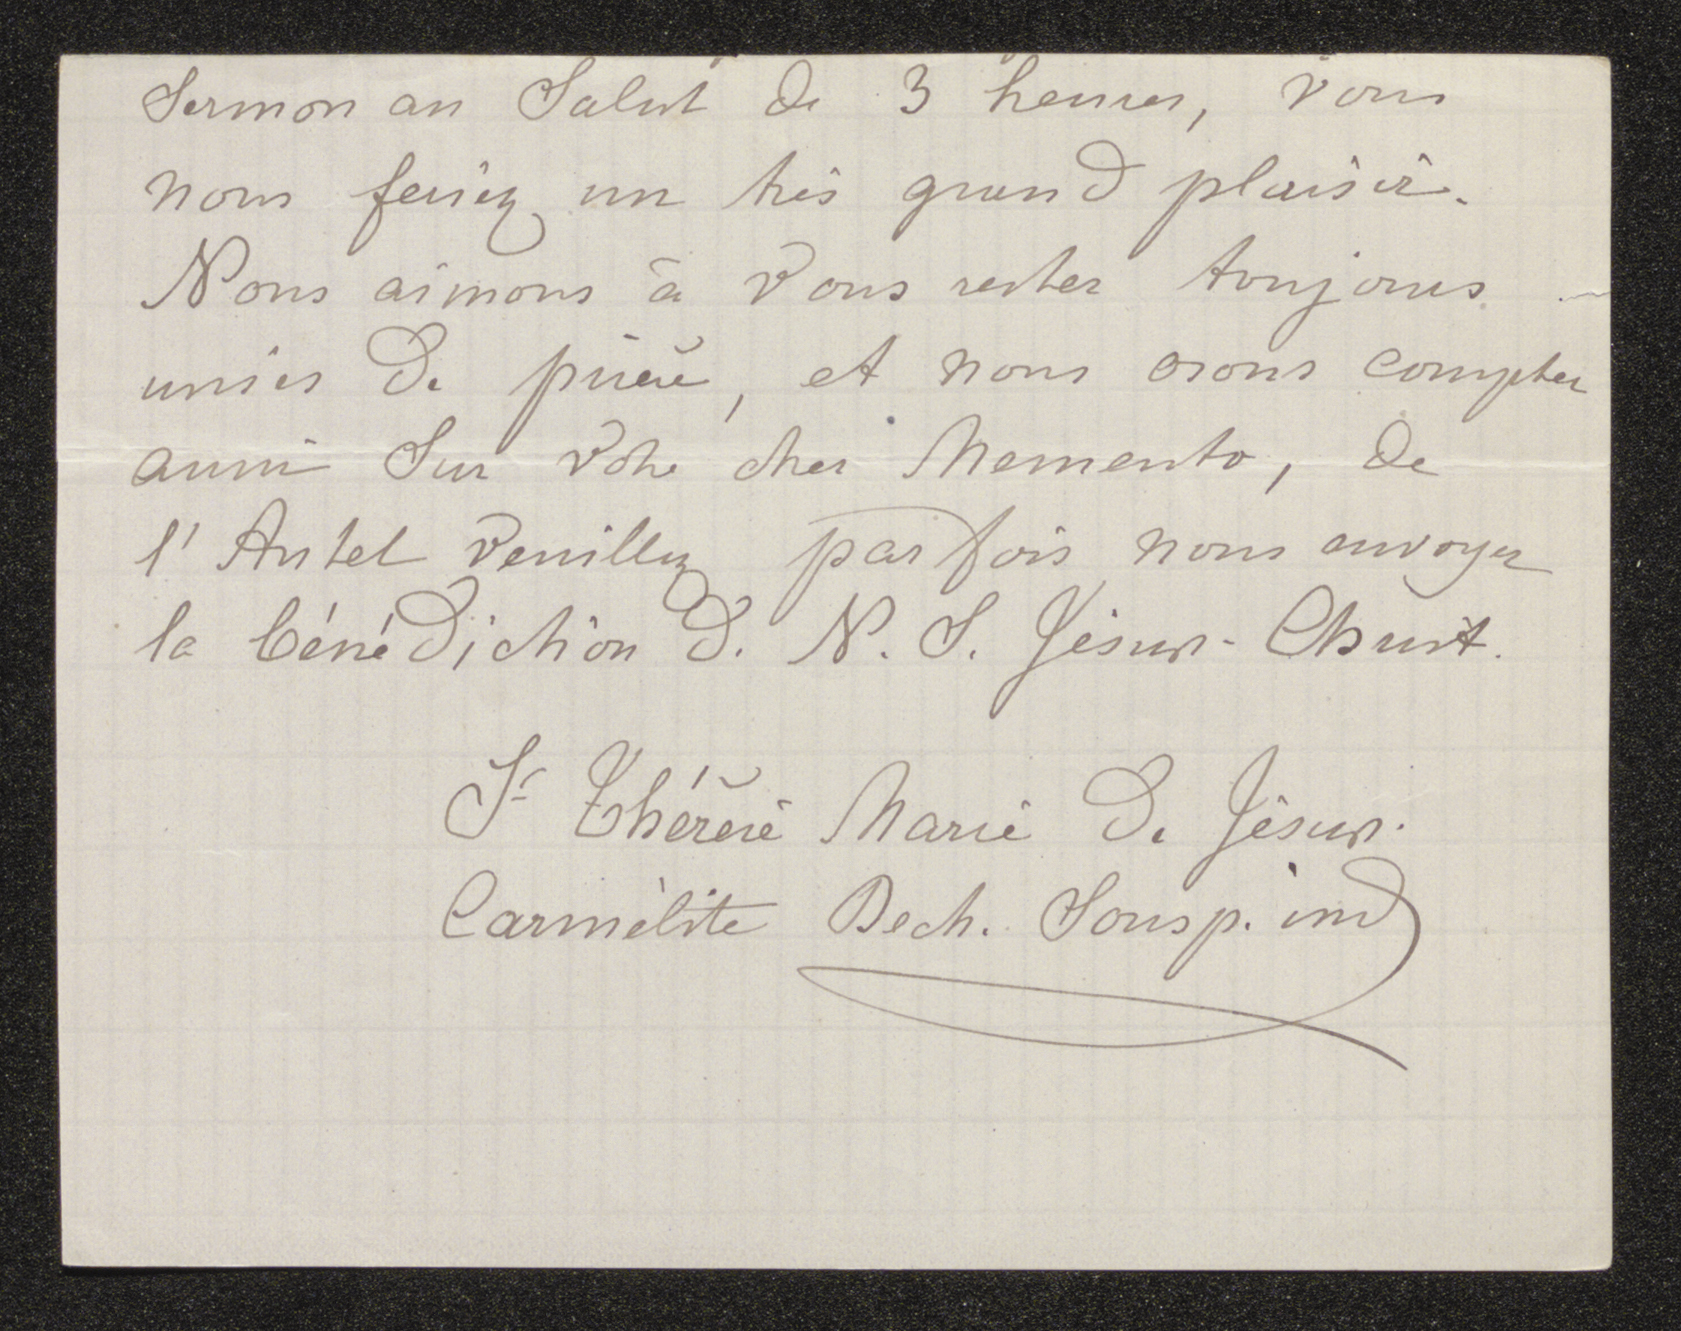 Sermon au Salut de 3 heures, vous
nous feriez un très grand plaisir.
Nous aimons à vous rester toujours
unies de prière, et nous osons compter
aussi Sur votre cher Memento, de
l'Autel veuillez parfois nous envoyer
la bénédiction d. N. S. Jésus-Christ.
Sr Thérèse Marie de Jésus.
Carmélite Dech. Sousp. ind